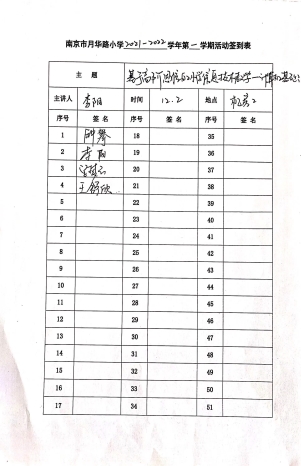 南京市月华路小学2021-2022学年第一学期活动签到表
主 题 基于 的小学信息技术教学——计算机基础
主讲人 李阳 时间 12.2 地点 机房2
序号 签名 序号 签名 序号 签名
1 18 35
2 李阳 19 36
3 20 37
4 王舒欣 21 38
5 22 39
6 23 40
7 24 41
8 25 42
9 26 43
10 27 44
11 28 45
12 29 46
13 30 47
14 31 48
15 32 49
16 33 50
17 34 51